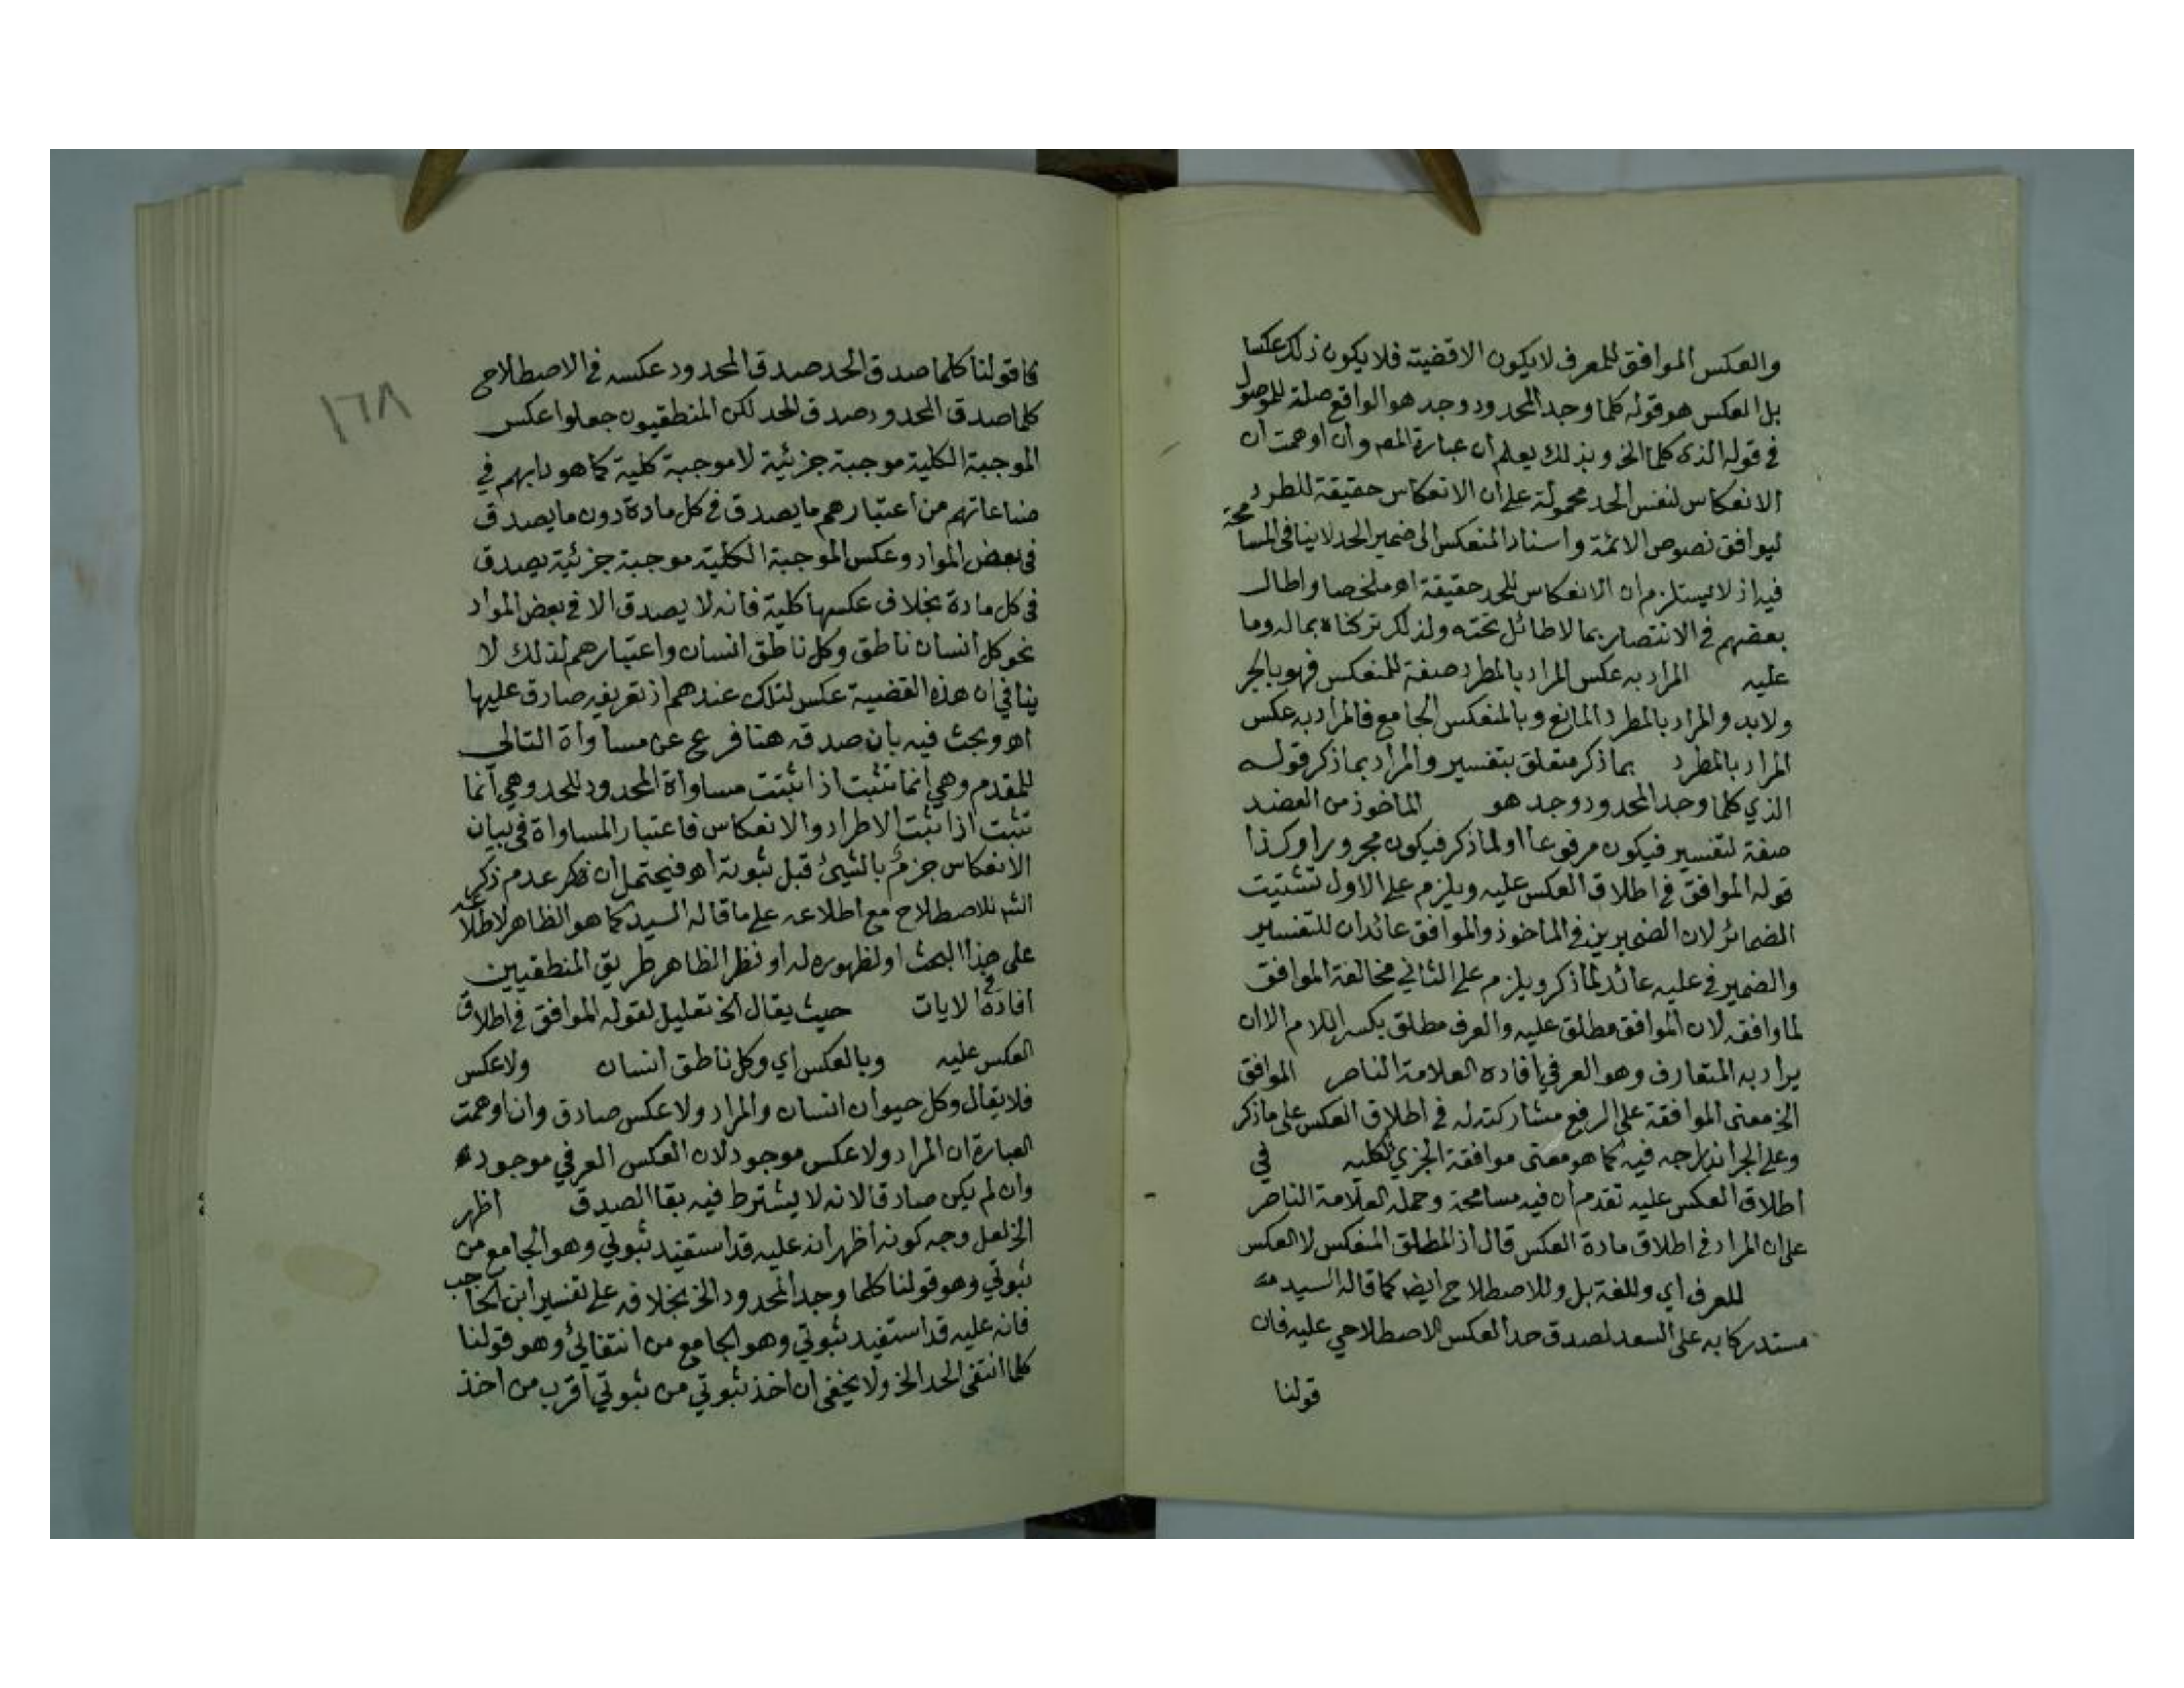 والعكس الموافق للمعرف لايكون الاقضيته فلا يكون ذلك عكسا
بل العكس هو قوله كلما وجد المحدود وجد هو الواقع صلة للموصول
في قوله الذى كلما الخ وبذلك يعلم ان عبارة المصـ وان اوهمت ان
الانعكاس لنفس الحد محمولة على ان الانعكاس حقيقة للطرد
ليوافق نصوص الائمة واسناد المنعكس الى ضمير الحد لاينافى المسامحة
فيه اذ لايستلزم ان الانعكاس للحد حقيقة اهـ ملخصا واطال
بعضهم في الانتصار بما لاطائل تحته ولذلك تركناه بماله وما
عليه المراد به عكس المراد بالمطرد صفة للمنعكس فهو بالجر
ولابد والمراد بالمطرد المانع وبالمنعكس الجامع فالمراد به عكس
المراد بالمطرد بماذكر متعلق بتفسير والمراد بماذكر قوله
الذي كلما وجد المحدود وجد هو الماخوذ من العضد
صفة لتفسير فيكون مرفوعا اولماذكر فيكون مجرورا وكذا
قوله الموافق في اطلاق العكس عليه ويلزم على الاول تشتيت
الضمائر لان الضميرين في الماخوذ والموافق عائدان للتفسير
والضمير في عليه عائد لماذكر ويلزم على الثاني مخالفة الموافق
لما وافقه لان الموافق مطلق عليه والعرف مطلق بكسر اللام الا ان
يراد به المتعارف وهو العرفي افاده العلامة الناصر الموافق
الخ معنى الموافقة على الرفع مشاركته له في اطلاق العكس على ماذكر
وعلى الجر اندراجه فيه كما هو معنى موافقة الجزي لكليه في
اطلاق العكس عليه تقدم ان فيه مسامحة وحمله العلامة الناصر
على ان المراد في اطلاق مادة العكس قال اذ المطلق المنعكس لا العكس
للعرف اي وللغة بل وللاصطلاح ايضا كما قاله السيد
مستدركا به على السعد لصدق حد العكس الاصطلاحي عليه فان
قولنا
١٦٨
قولنا كلما صدق الحد صدق المحدود عكسه في الاصطلاح
كلما صدق المحدود صدق الحد لكن المنطقيون جعلوا عكس
الموجبة الكلية موجبة جزئية لاموجبة كلية كما هو دابهم في
صناعاتهم من اعتبارهم مايصدق في كل مادة دون مايصدق
في بعض المواد وعكس الموجبة الكلية موجبة جزئية يصدق
في كل مادة بخلاف عكسها كلية فانه لا يصدق الا في بعض المواد
نحو كل انسان ناطق وكل ناطق انسان واعتبارهم لذلك لا
ينافي ان هذه القضية عكس لتلك عندهم اذ تعريفه صادق عليها
اهـ وبحث فيه بان صدقه هنا فرع عن مساواة التالي
للمقدم وهي انما تثبت اذا ثبتت مساواة المحدود للحد وهي انما
تثبت اذا ثبت الاطراد والانعكاس فاعتبار المساواة في بيان
الانعكاس جزم بالشيئ قبل ثبوته اهـ فيحتمل ان عدم ذكر
الشـ للاصطلاح مع اطلاعه على ماقاله السيد كما هو الظاهر لاطلاعه
على هذا البحث او لظهوره له او نظر الظاهر طريق المنطقيين
افاده في الايات حيث يقال الخ تعليل لقوله الموافق في اطلاق
العكس عليه وبالعكس اي وكل ناطق انسان ولاعكس
فلايقال وكل حيوان انسان والمراد ولاعكس صادق وان اوهمت
العبارة ان المراد ولاعكس موجود لان العكس العرفي موجود
وان لم يكن صادقا لانه لا يشترط فيه بقا الصدق اظهر
الخ لعل وجه كونه اظهر انه عليه قد استفيد ثبوتي وهو الجامع من
ثبوتي وهو قولنا كلما وجد المحدود الخ بخلافه على تفسير ابن الحاجب
فانه عليه قد استفيد ثبوتي وهو الجامع من انتفائي وهو قولنا
كلما انتفى الحد الخ ولا يخفى ان اخذ ثبوتي من ثبوتي اقرب من اخذ